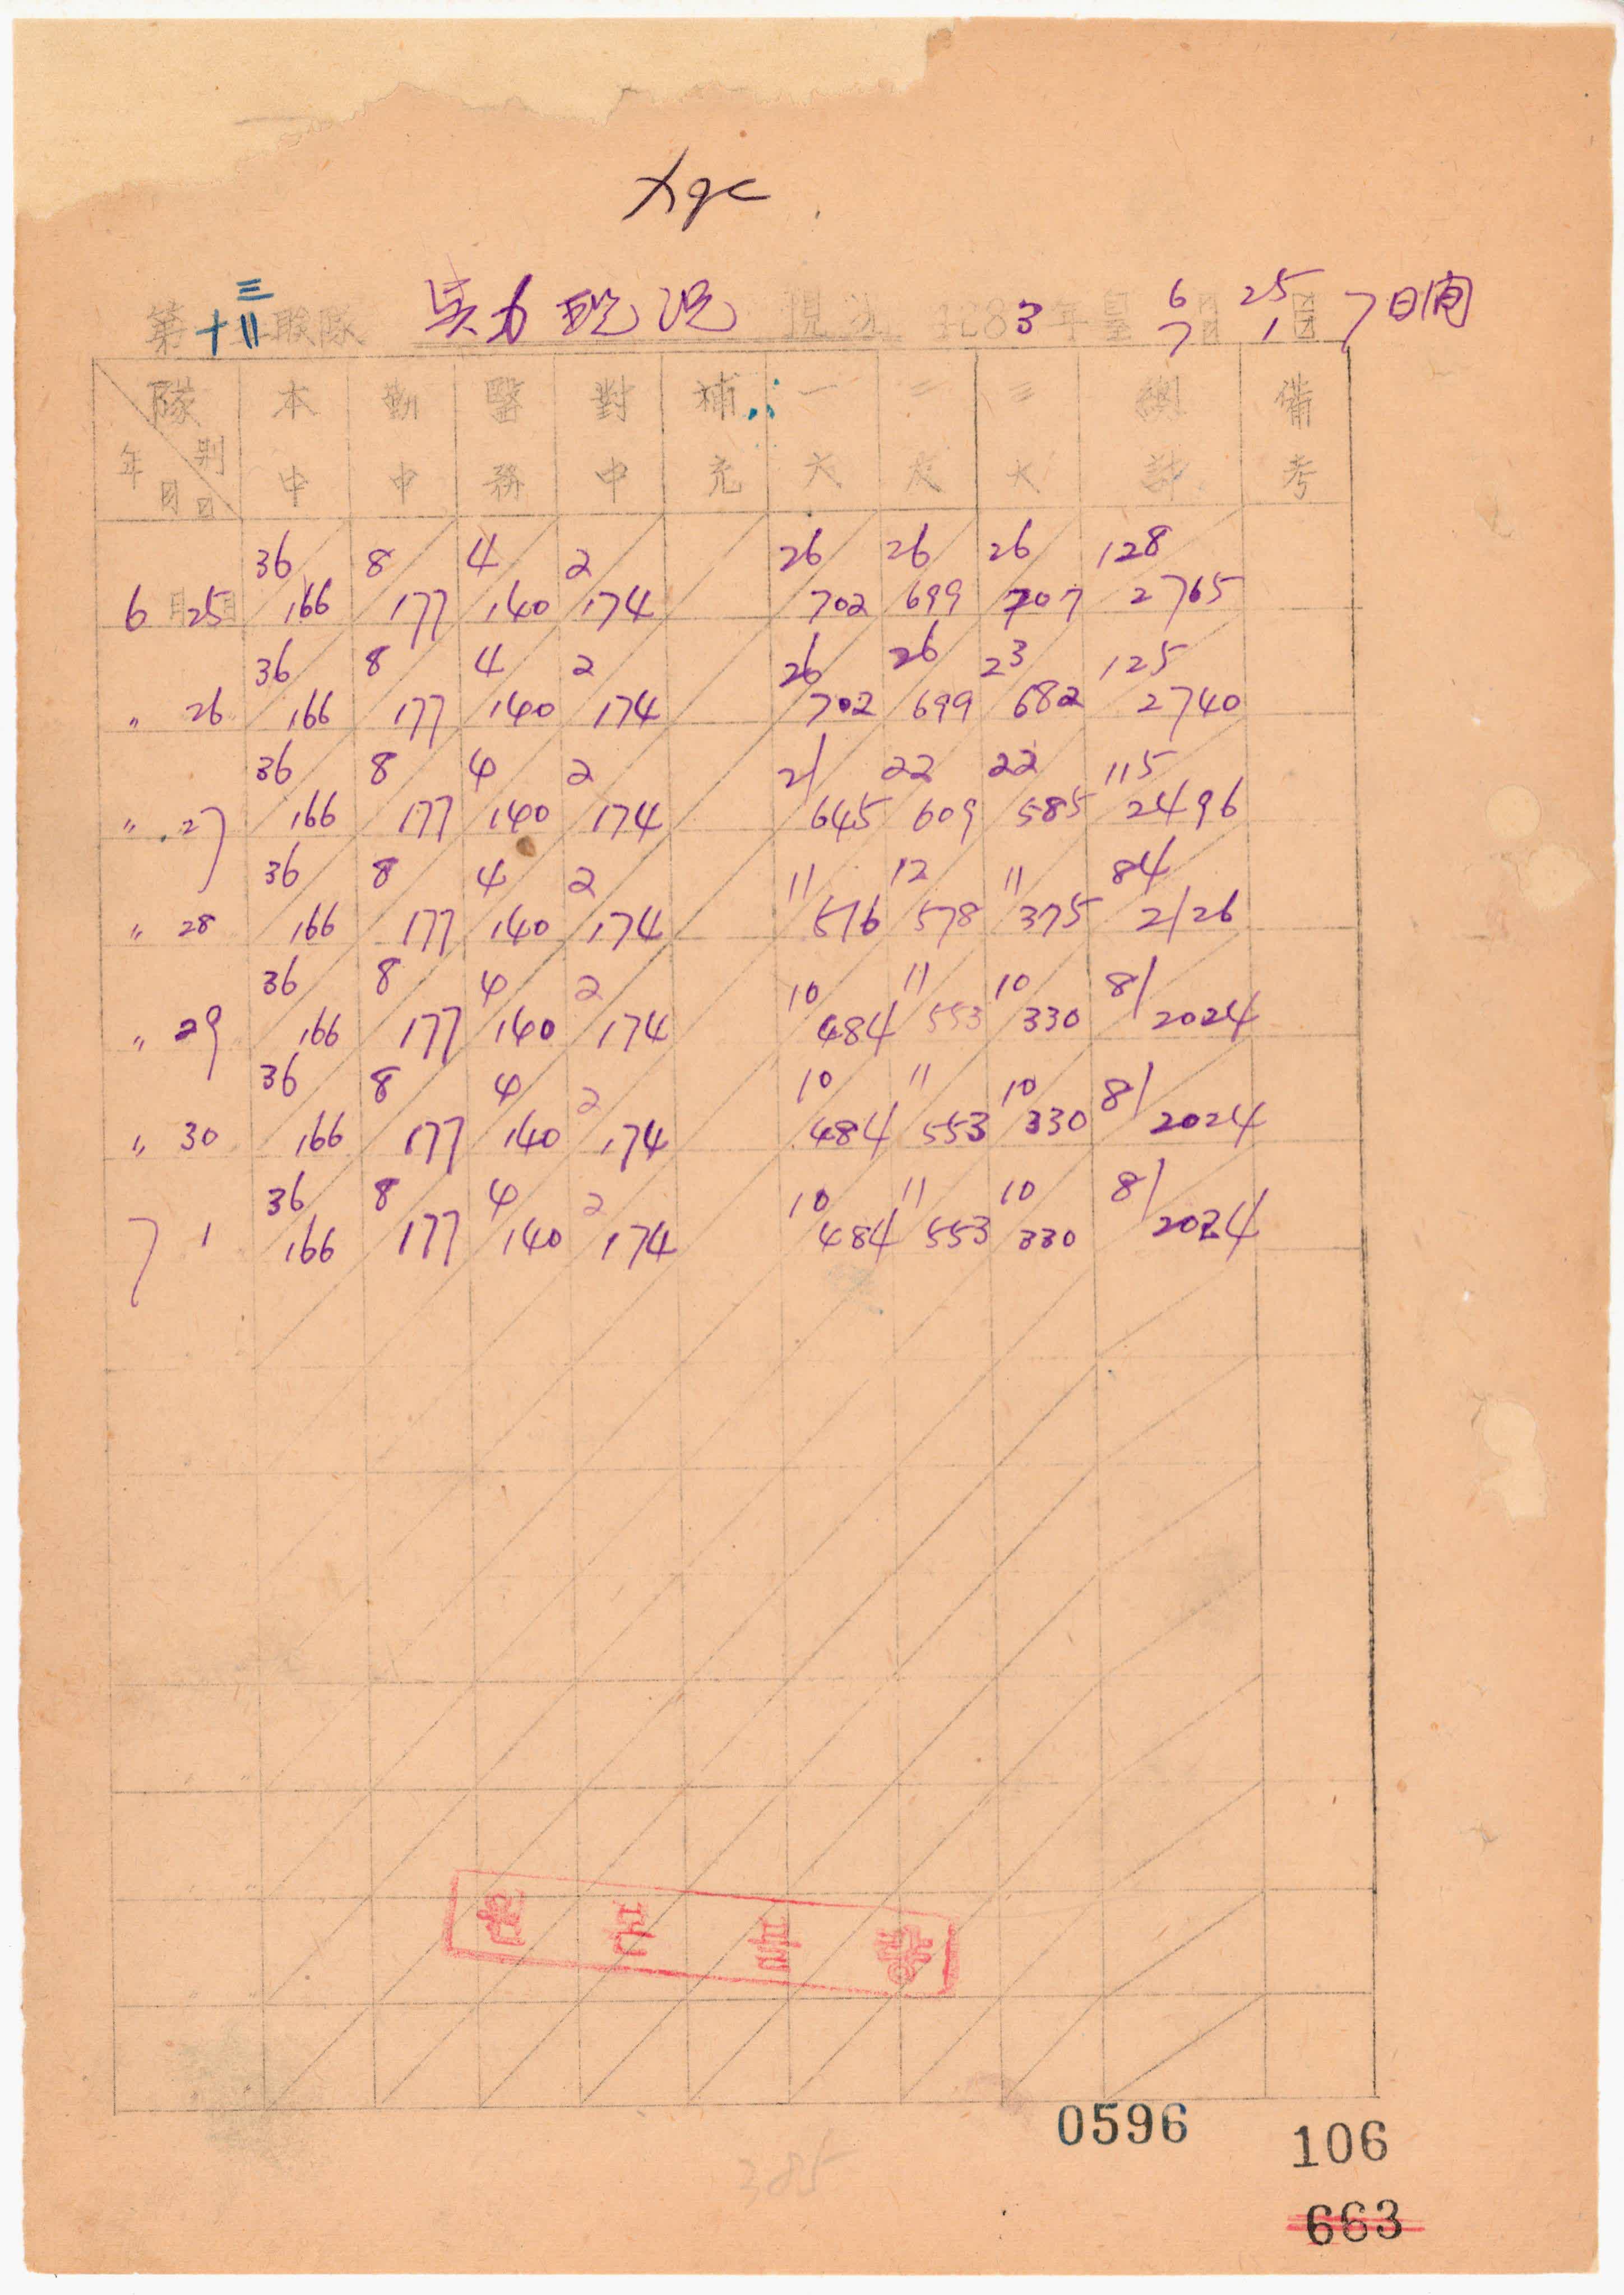 第十三聯隊 兵力現況 現況 4283年 6月25日 7月1日 7日間
隊別 年月日 本中 勤中 醫務 對中 補充 一大 二大 三大 總計 備考
36 8 4 2 26 26 26 128
6月25日 166 177 140 174 702 699 707 2765
36 8 4 2 26 26 23 125
〃 26 166 177 140 174 702 699 682 2740
36 8 4 2 21 22 22 115
〃 27 166 177 140 174 645 609 585 2496
36 8 4 2 11 12 11 84
〃 28 166 177 140 174 516 578 375 2126
36 8 4 2 10 11 10 81
〃 29 166 177 140 174 484 553 330 2024
36 8 4 2 10 11 10 81
〃 30 166 177 140 174 484 553 330 2024
36 8 4 2 10 11 10 81
7 1 166 177 140 174 484 553 330 2024
원본
0596
106
385
663